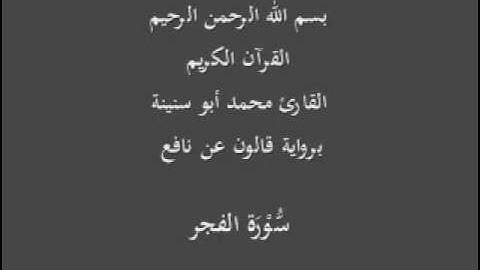 بسم الله الرحمن الرحيم
القرآن الكريم
القارئ محمد أبو سنينة
برواية قالون عن نافع
سُّوْرَة الفجر